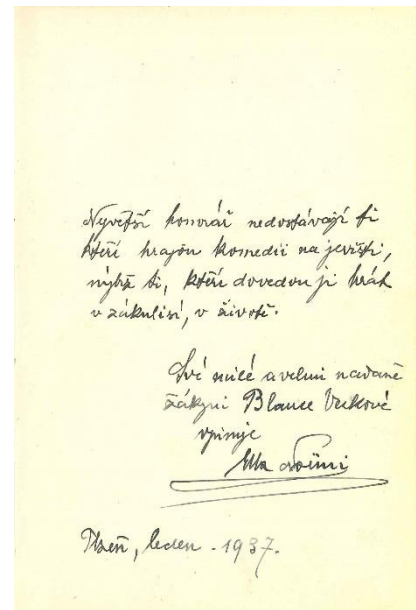 Největší honorář nedostávají ti
kteří hrajou komedii na jevišti,
nýbrž ti, kteří dovedou ji hrát
v zákulisí, v životě.
Své milé a velmi nadané
žákyni Blance
vpisuje
Plzeň, leden. 1937.